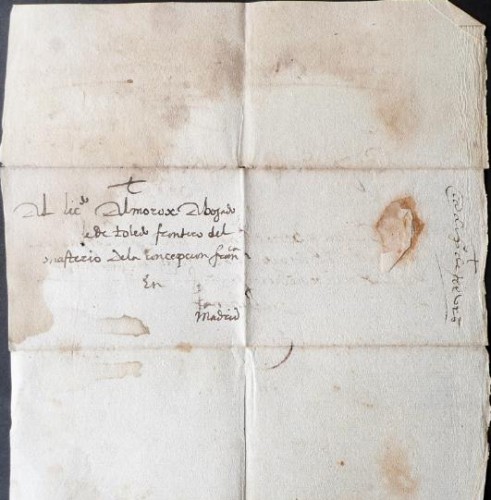 Al licdo Almorox Abogado
de Toledo frontero del
monasterio de la concepcion francca
En
Madrid